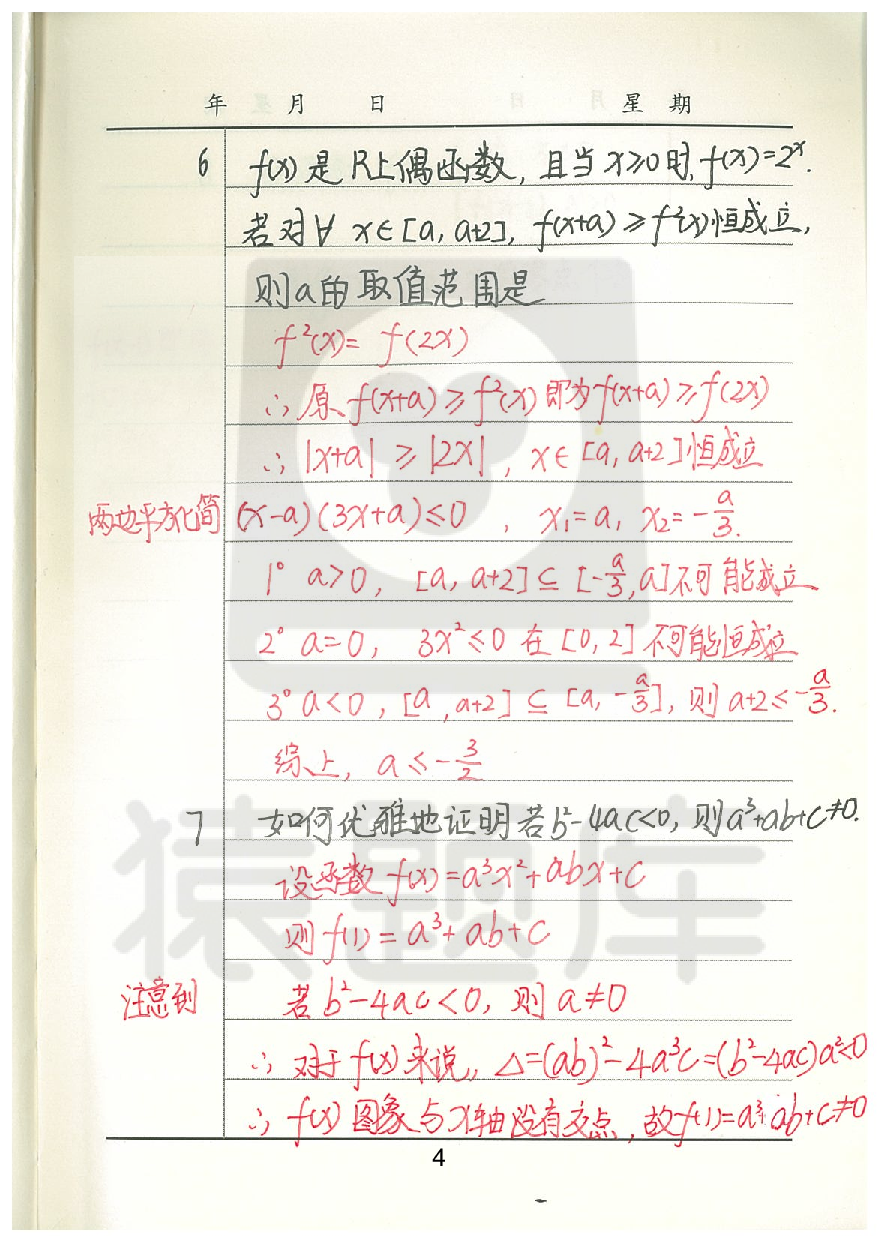 年 月 日 星 期
6 f(x)是R上偶函数，且当x≥0时，f(x)=2ˣ.
若对∀ x∈[a, a+2], f(x+a)≥f²(x)恒成立,
则a的取值范围是
f²(x)= f(2x)
∴原f(x+a)≥f²(x)即为f(x+a)≥f(2x)
∴|x+a|≥|2x|, x∈[a, a+2]恒成立
两边平方化简 (x-a)(3x+a)≤0 , x₁=a, x₂=-a/3.
1° a>0, [a, a+2]⊆[-a/3, a]不可能成立
2° a=0, 3x²≤0 在[0,2]不可能恒成立
3° a<0, [a, a+2]⊆[a, -a/3], 则 a+2≤-a/3.
综上, a≤-3/2
7 如何优雅地证明若b²-4ac<0, 则a³+ab+c≠0.
设函数f(x)=a³x²+abx+c
则f(1)=a³+ab+c
注意到 若b²-4ac<0, 则a≠0
∴对于f(x)来说, △=(ab)²-4a³c=(b²-4ac)a²<0
∴f(x)图象与x轴没有交点, 故f(1)=a³+ab+c≠0
4
猿题库